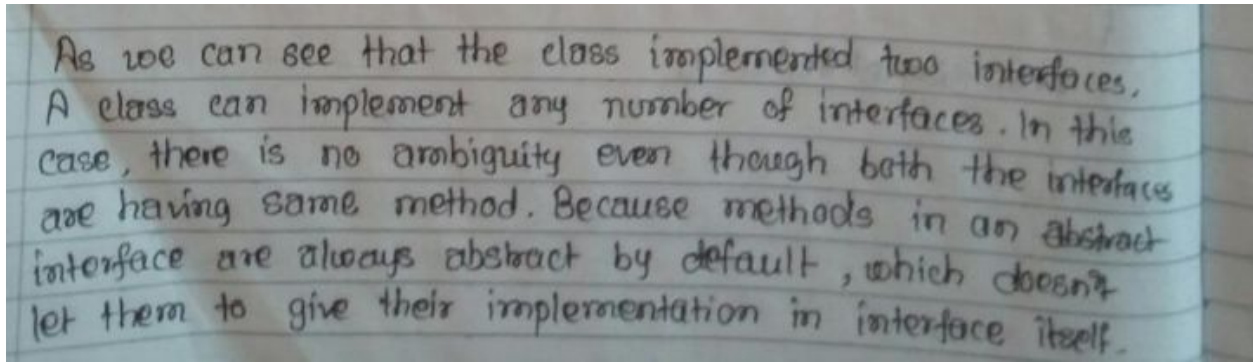 As we can see that the class implemented two interfaces.
A class can implement any number of interfaces. In this
case, there is no ambiguity even though both the interfaces
are having same method. Because methods in an abstract
interface are always abstract by default, which doesn't
let them to give their implementation in interface itself.